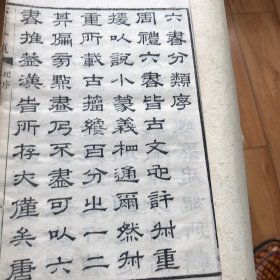 六書分類序
周禮六書皆古文也許叔重
援以說小篆義相通爾然叔
重所載古籀纔百分之一二
其偏旁點畫乃不盡可以六
書推蓋漢旹所存亦僅矣唐
序